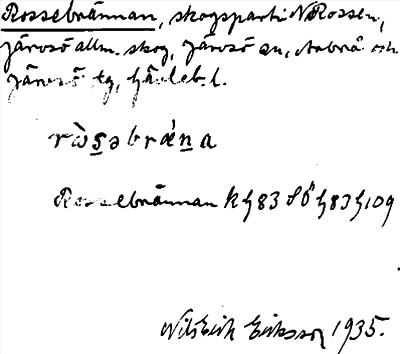 Rossebrännan, skogsparti N Rossen,
Järvsö allm. skog, Järvsö sn, Arbrå och
Järvsö tg, Gävleb. l.
rὼs̲əbrǽn̲a
Rossebrännan K h83 SÖ h83 h109
Nils Erik Eriksson 1935.